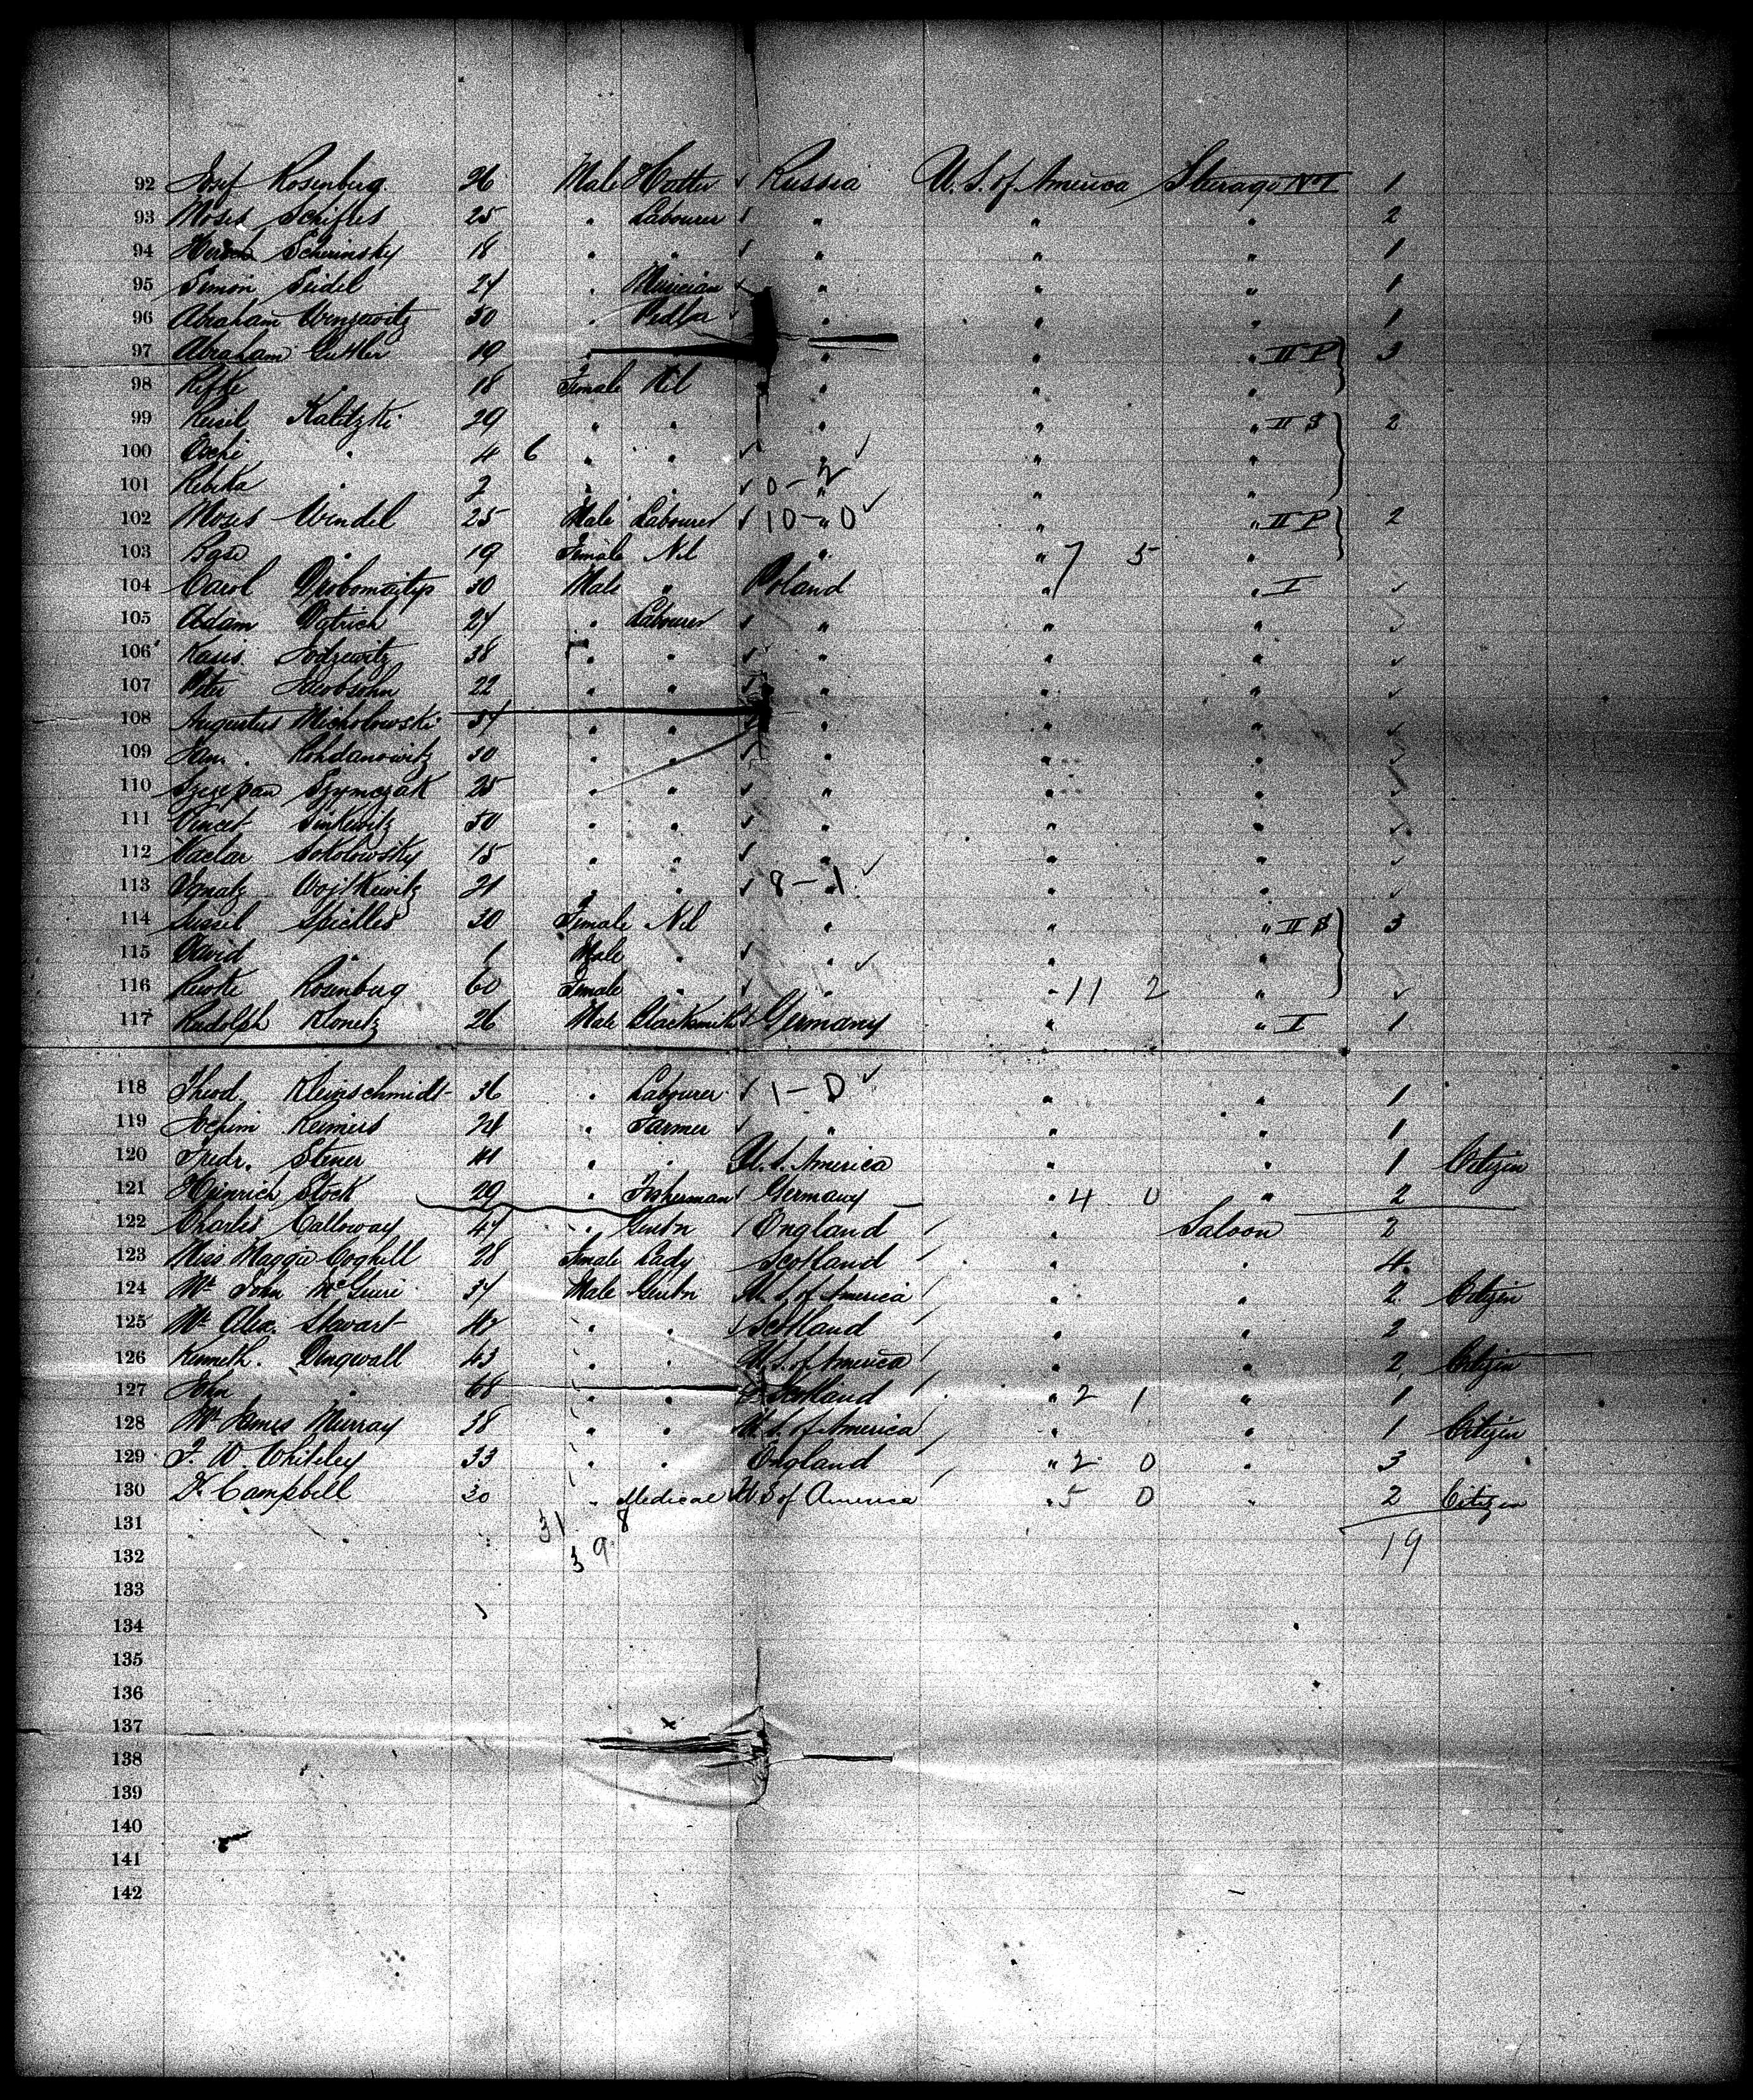 92 Josef Rosenberg 26 Male Hatter ✓ Russia U. S. of America Steerage No I 1
93 Moses Schifres 25 " Labourer ✓ " " " 2
94 Hersch Scherinsky 18 " " ✓ " " " 1
95 Simon Seidel 24 " Musician ✓ " " " 1
96 Abraham 30 " Pedlar ✓ " " " 1
97 Abraham Guttler 19 " " " " " II P 3
98 Rifke " 18 Female Nil " " "
99 Reisel Kalitzki 29 " " " " " II S 2
100 " 4 6 " " ✓ " ✓ " "
101 Rebika " 2 " " ✓ 0 – 2 " "
102 Moses Windel 25 Male Labourer ✓ 10 – 0 ✓ " " II P 2
103 Base " 19 Female Nil " " 7 5 "
104 Carol 30 Male " Poland " " I ✓
105 Adam 24 " Labourer ✓ " " " ✓
106 Kasis 38 " " ✓ " " " ✓
107 Peter Jacobsohn 22 " " ✓ " " " ✓
108 Augustus Micholowski 34 " " " " " ✓
109 Jan Bohdanowitz 30 " " ✓ " " " ✓
110 Szczepan Szymczak 25 " " ✓ " " " ✓
111 Vincet Sinkewitz 30 " " ✓ " " " ✓
112 Vaclav Sokolowsky 15 " " ✓ " " " ✓
113 Wojtkewitz 21 " " ✓ 8 – 1 ✓ " " ✓
114 30 Female Nil " " " II S 3
115 David " 1 Male " ✓ " " "
116 Rosenberg 60 Female " ✓ " ✓ " 11 2 " ✓
117 Rudolph Klonetz 26 Male Blacksmith ✓ Germany " " I 1
118 Theod. Kleinschmidt 36 " Labourer ✓ 1 – 0 ✓ " " 1
119 Jochim Reimers 24 " Farmer ✓ " " " 1
120 Fredr. Stener 41 " " U. S. America " " 1 Citizen
121 Heinrich Stock 29 " Fisherman ✓ Germany " 4 0 " 2
122 Charles Calloway 47 " Gentn / England / " Saloon 2
123 Miss Maggie Coghill 28 Female Lady Scotland / " " 4
124 Mr. John McGuire 34 Male Gentn U. S. of America / " " 2 Citizen
125 Mr. Alex. Stewart 42 " " / Scotland " " 2
126 Kenneth. Dingwall 43 " " U. S. of America / " " 2 Citizen
127 John " 68 " " Scotland / " 2 1 " 1
128 Mr James Murray 38 " " U. S. of America / " " 1 Citizen
129 F. W. Whiteley 33 " " England / " 2 0 " 3
130 Campbell 30 " Medical U S of America / " 5 0 " 2 Citizen
131 31 8
132 3 9 19
133
134
135
136
137
138
139
140
141
142